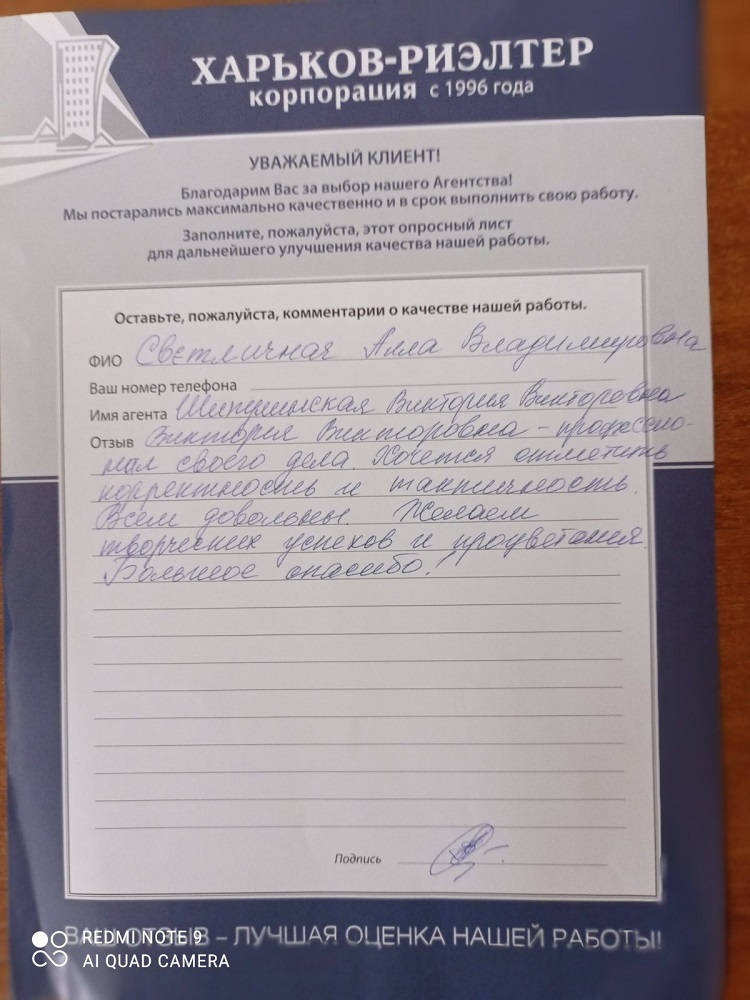 ХАРЬКОВ-РИЭЛТЕР
корпорация с 1996 года
УВАЖАЕМЫЙ КЛИЕНТ!
Благодарим Вас за выбор нашего Агентства!
Мы постарались максимально качественно и в срок выполнить свою работу.
Заполните, пожалуйста, этот опросный лист
для дальнейшего улучшения качества нашей работы.
Оставьте, пожалуйста, комментарии о качестве нашей работы.
ФИО Светличная Алла Владимировна
Ваш номер телефона
Имя агента Виктория Викторовна
Отзыв Виктория Викторовна - професcио-
нал своего дела. Хочется отметить
корректность и тактичность.
Всем довольны. Желаем
творческих успехов и процветания.
Большое спасибо!
Подпись
ВАШ ОТЗЫВ – ЛУЧШАЯ ОЦЕНКА НАШЕЙ РАБОТЫ!
REDMI NOTE 9
AI QUAD CAMERA